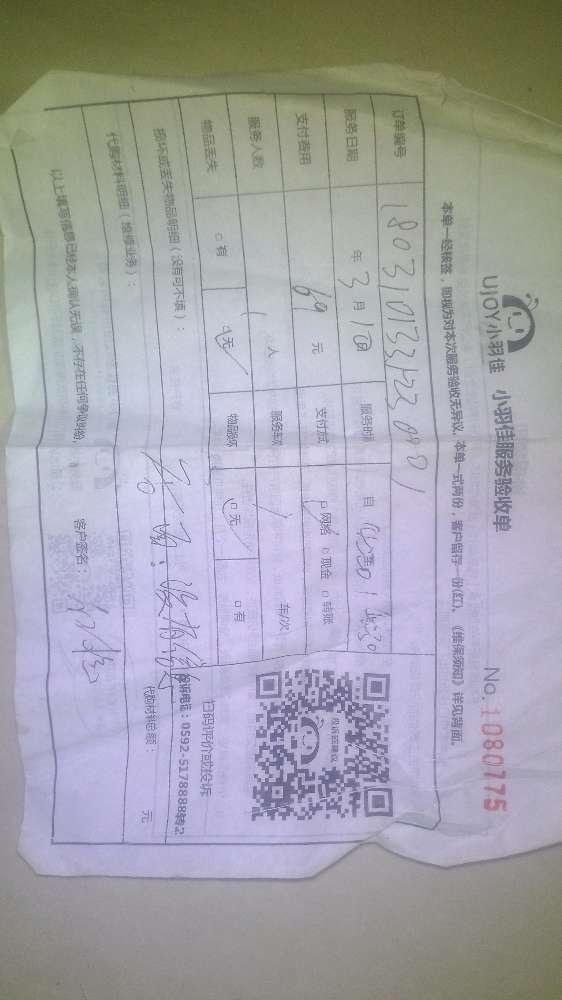 UJOY小羽佳 小羽佳服务验收单 No.1080775
本单一经核签，即视为对本次服务验收无异议。本单一式两份，客户留存一份(红)。《维保须知》详见背面。
订单编号
服务日期 年 3 月 1 日 服务时间 自
支付费用 69 元 支付方式 网络 现金 转账
服务人数 1 人 服务车辆 车/次
物品丢失 有 无 物品损坏 无 有
损坏或丢失物品明细（没有可不填）：
代购材料明细（维修业务）： 代购材料总额： 元
以上填写信息已经本人确认无误，不存在任何争议纠纷。 客户签名：
投诉或建议
扫码评价或投诉
投诉电话：0592-5178888转2